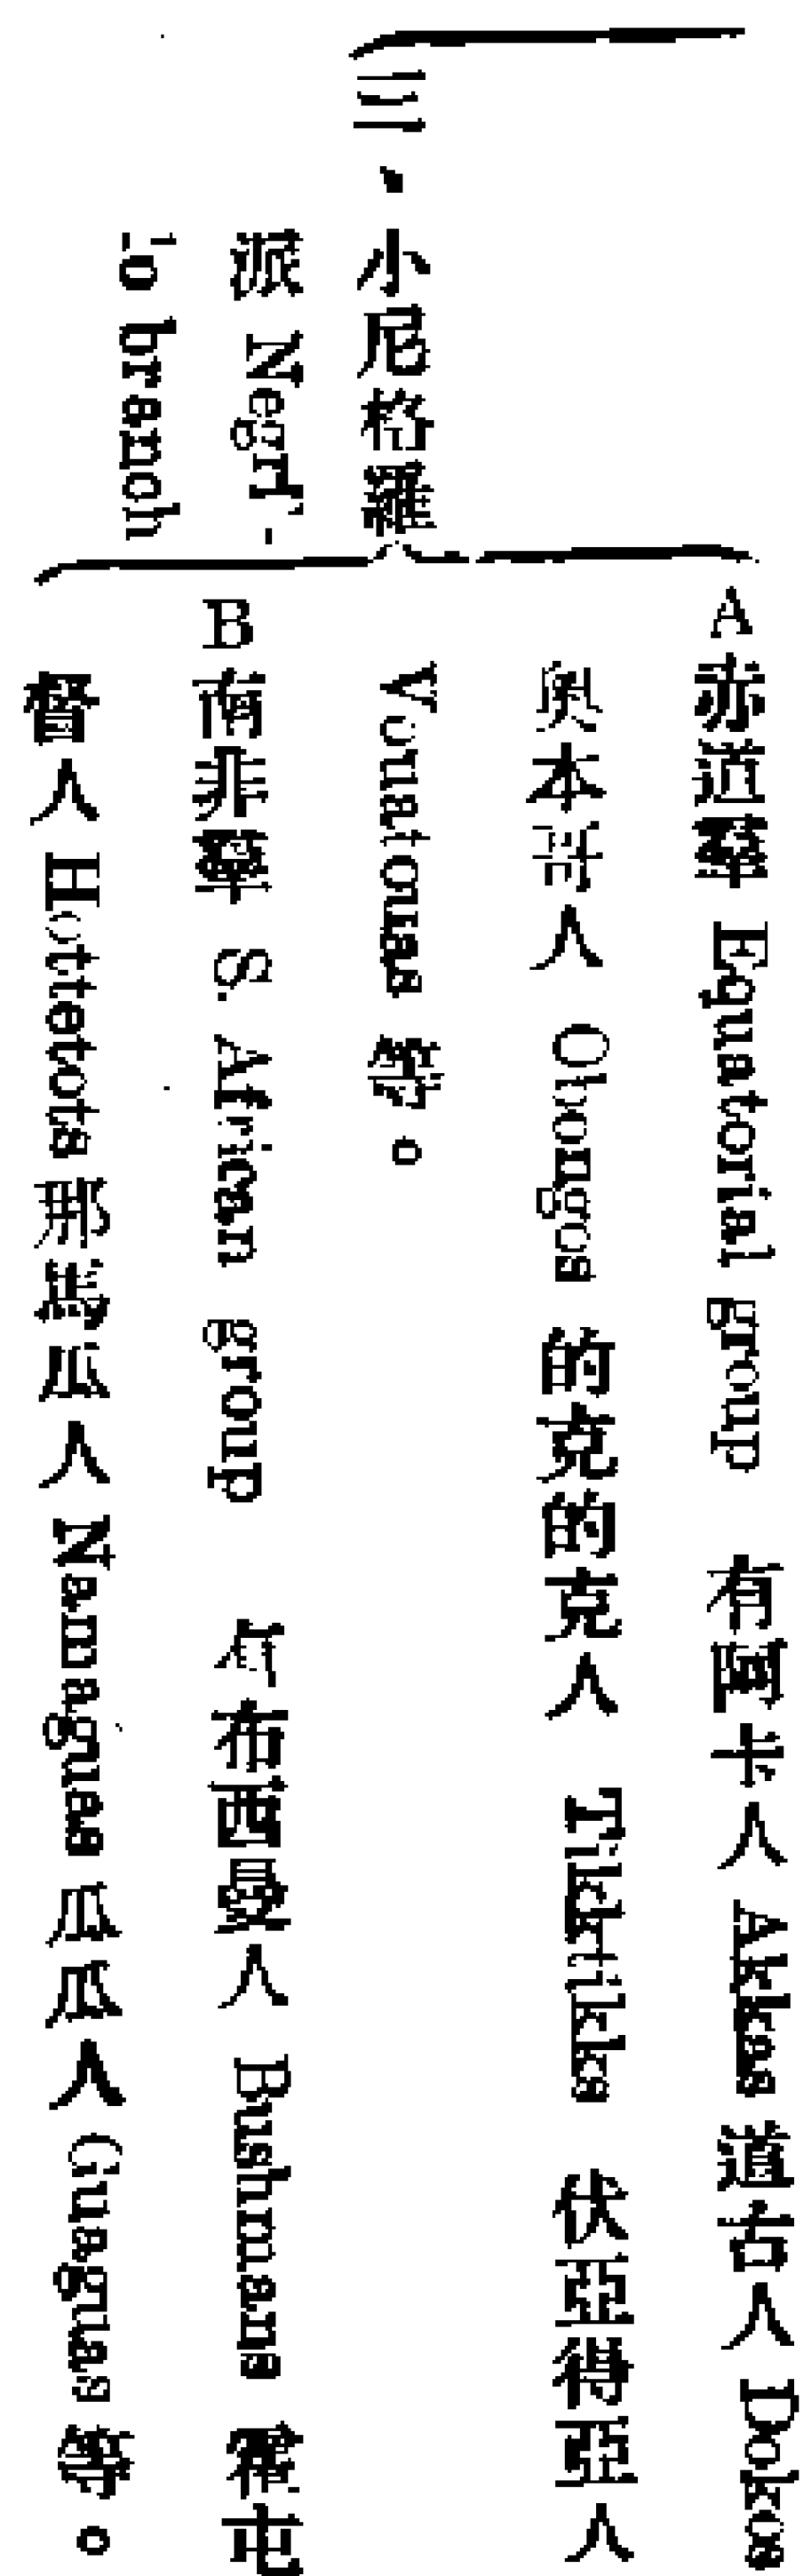 三、小尼格羅
派 Negri-
to branch
A 赤道羣 Equatorial group 有阿卡人 Akkas 道古人 Dokos
奧本哥人 Obongos 的克的克人 Tikktikks 伏亞得亞人
Vouatouas 等。
B 南非羣 S. African group 有布西曼人 Bushmans 霍屯
督人 Hottetots 那馬瓜人 Namaguas 瓜瓜人 Guaguas 等。